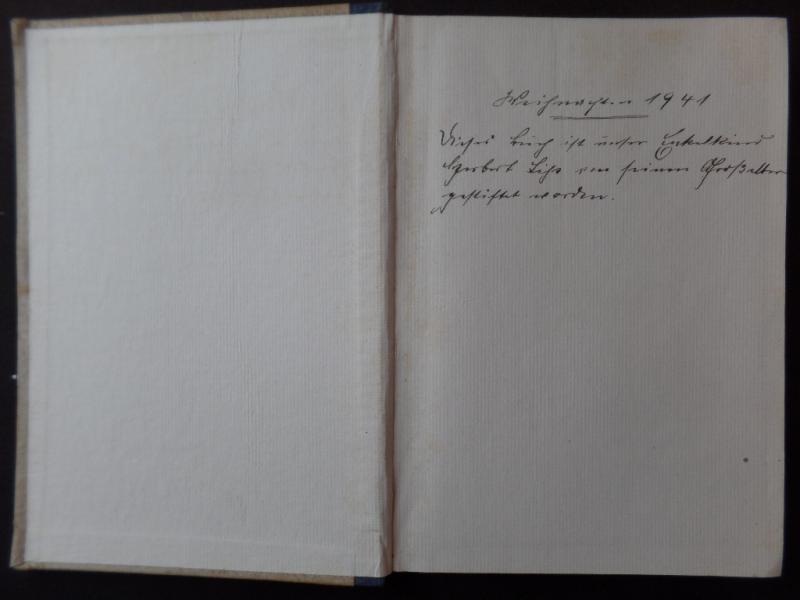 Weihnachten 1941
Dieses Buch ist unser Enkelkind
Herbert von seinen Großeltern
gestiftet worden.